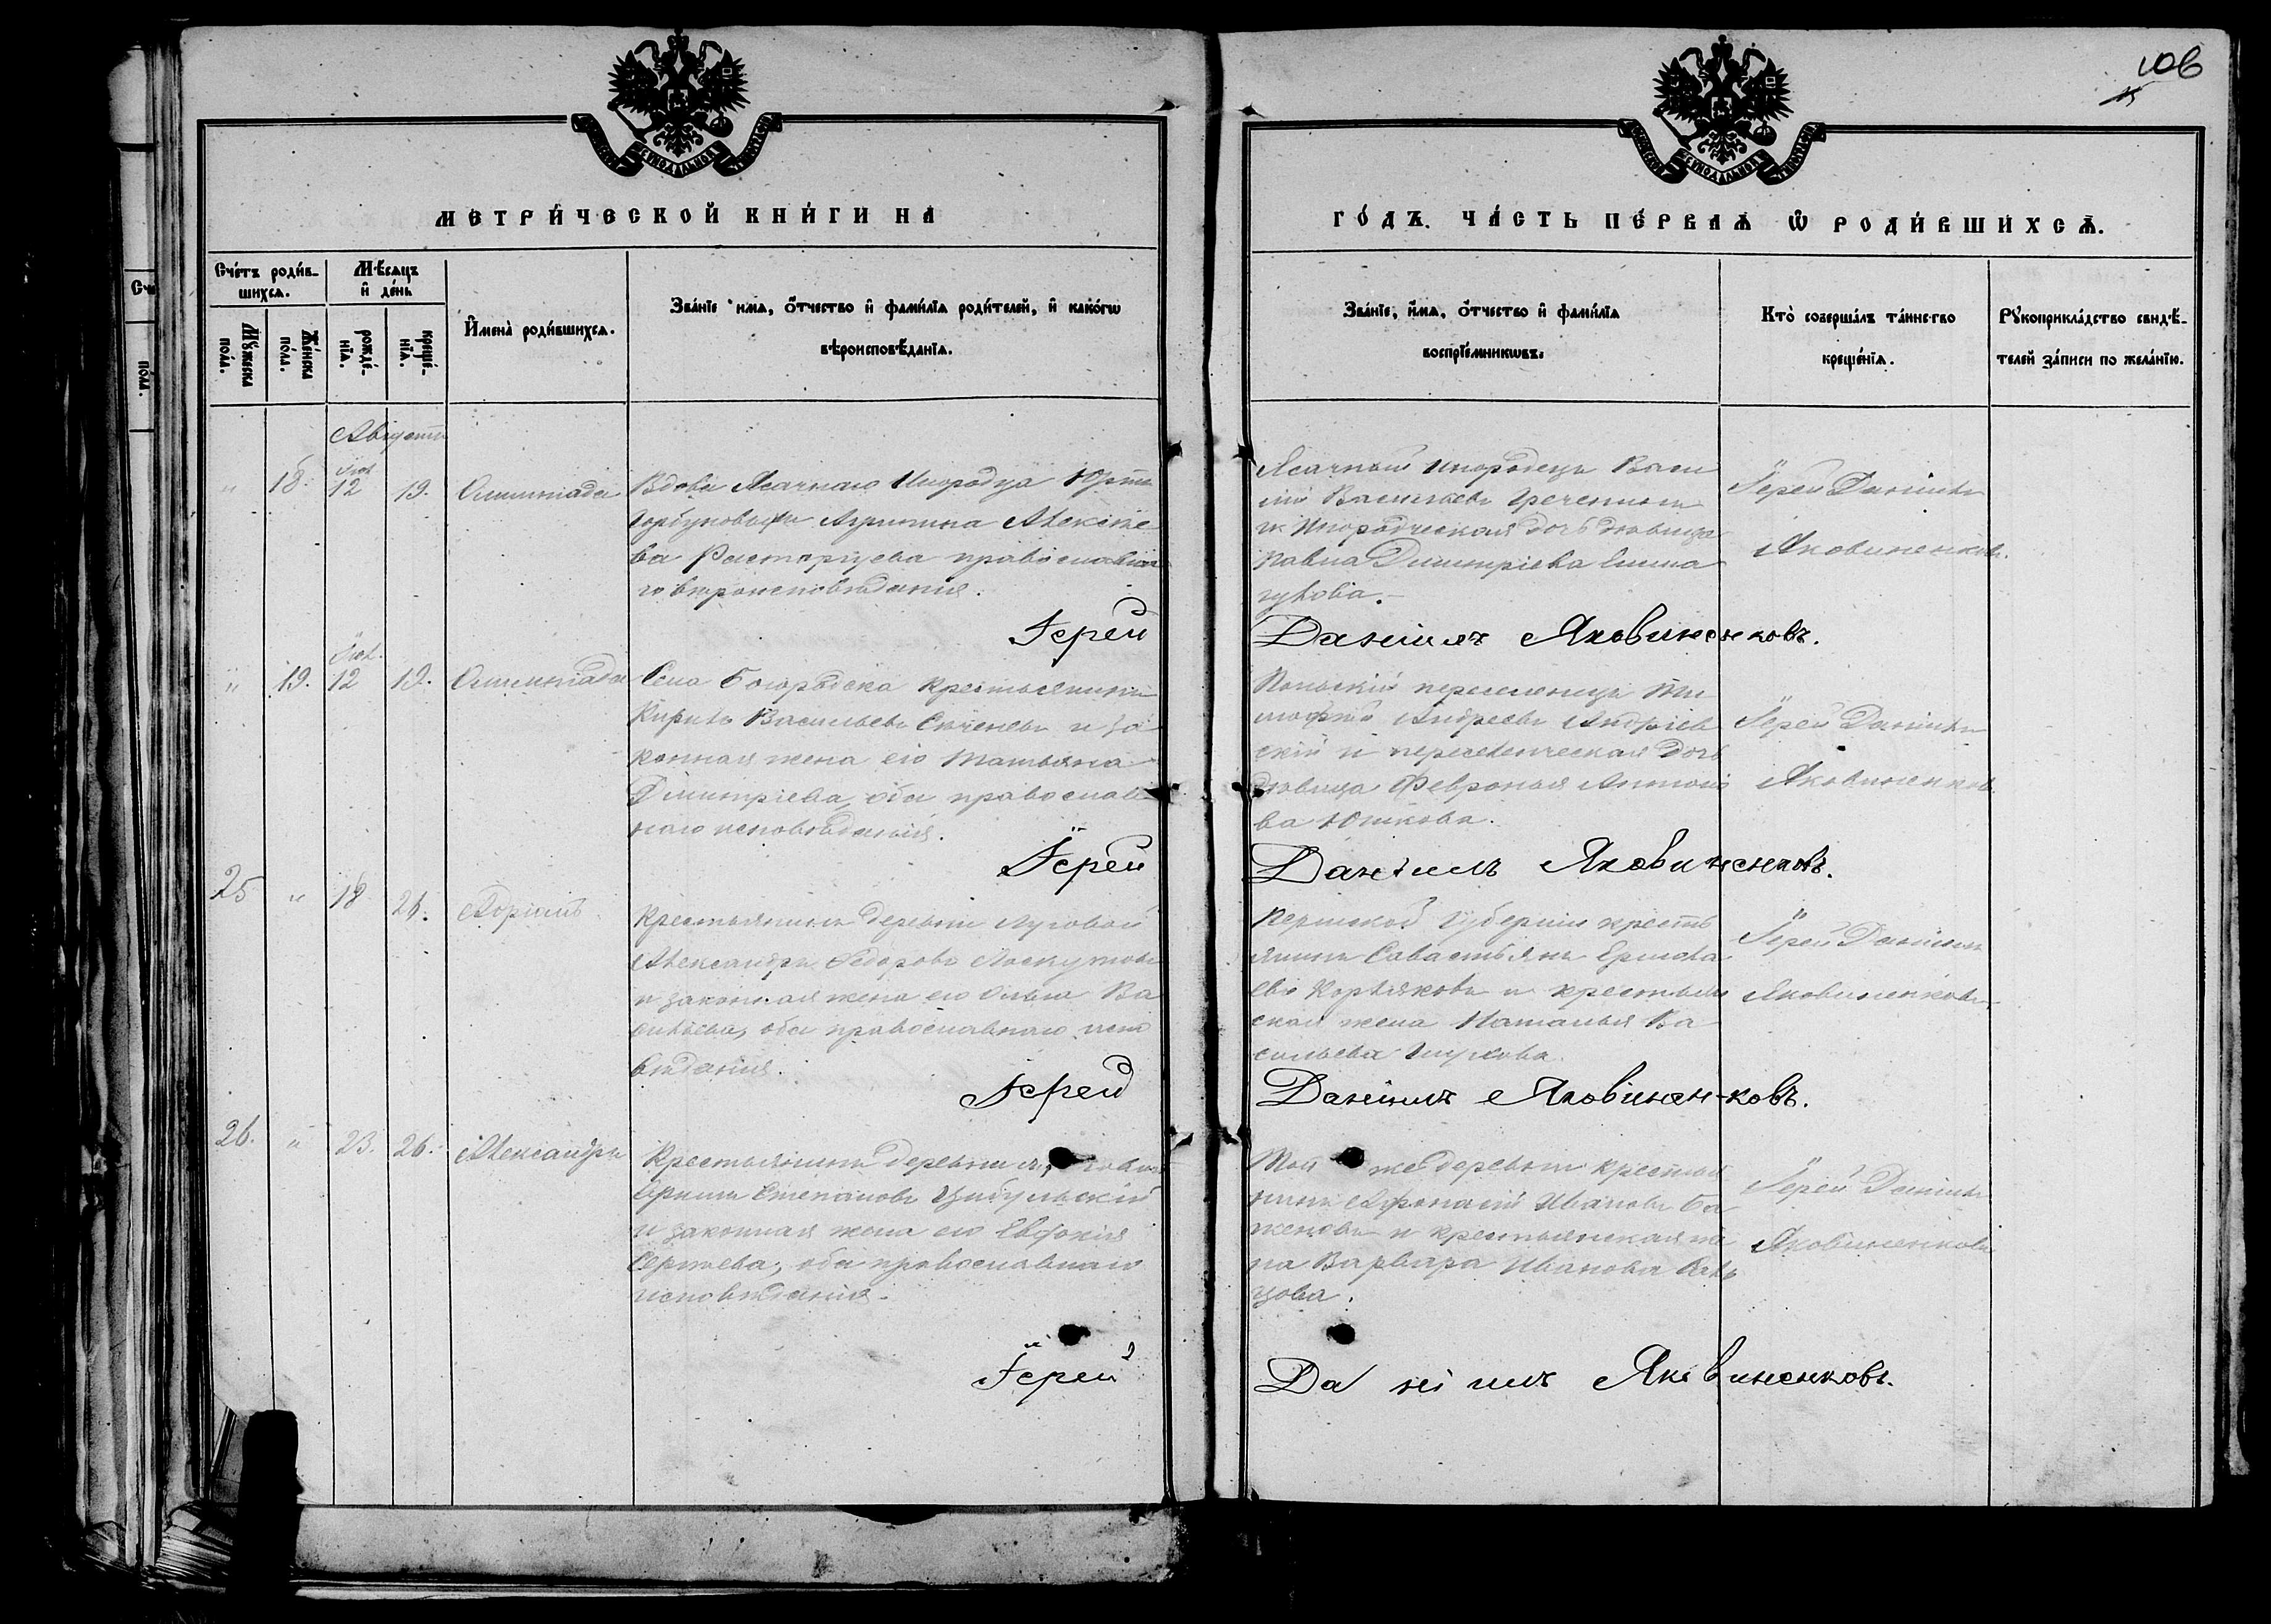 106
15
МЕТРИ́ЧЕСКОЙ КНИ́ГИ НА
ГО́ДЪ. ЧА́СТЬ ПЕ́РВАѦ Ѡ҆ РОДИ́ВШИХСѦ.
Сче́тъ роди́в-
шихсѧ.
Мѣ́сѧцъ
и҆ де́нь
Мꙋ́жеска
по́ла.
Же́нска
по́ла.
рожде́-
нїѧ.
креще́-
нїѧ.
И҆мена̀ роди́вшихсѧ.
Зва́нїе и҆мѧ, о҆́тчество и҆ фами́лїѧ роди́телей, и҆ како́гѡ
вѣроисповѣ́данїѧ.
Зва́нїе, и҆́мѧ, о҆́тчество и҆ фами́лїѧ
воспрїе́мникѡвъ.
Кто̀ соверша́лъ та́инство
креще́нїѧ.
Рꙋкоприкла́дство свидѣ́-
телей за́писи по жела́нїю.
Августъ
" 18. Іюл. 12 19. Олимпіада
Вдова Ясачнаго Инородца Юртъ
Алексѣе-
ва Расторгуева православна-
го вѣроисповѣданія.
Ясачный инородецъ Васи
лій Васильевъ
Инородческая дочь дѣвица
Павла Димитріева
Іерей Даніилъ
Яковиненковъ.
Іерей Даніилъ Яковиненковъ.
" 19. Іюл. 12 19. Олимпіада
Села Богородска Крестьянинъ
Васильевъ и за
конная жена его Татьяна
Димитріева, оба православ
наго исповѣданія.
Польскій переселенецъ Ти
мофей Андреевъ Андріев
скій и переселенческая дочь
дѣвица Февронья Антоно
ва Юшкова.
Іерей Даніилъ
Яковиненковъ
Іерей Даніилъ Яковиненковъ.
25 " 18 26.
Крестьянинъ деревни Луговой
Александръ Федоровъ Лоскутовъ
и законная жена его Ольга Ва
сильева, оба православнаго испо
вѣданія.
Пермской Губерніи кресть
янинъ Савастьянъ Ермола
евъ Корляковъ и крестьян
ская жена Наталья Ва
сильева
Іерей Даніилъ
Яковиненковъ
Іерей Даніилъ Яковиненковъ.
26. " 23. 26. Александръ
Крестьянинъ деревни
Степановъ Цибульскій
и законная жена его Евфимія
Сергѣева, оба православнаго
исповѣданія.
Той же деревни крестья
нинъ Афонасій Ивановъ Ба
женовъ и крестьянская же
на Варвара Иванова
Іерей Даніилъ
Яковиненковъ
Іерей Даніилъ Яковиненковъ.